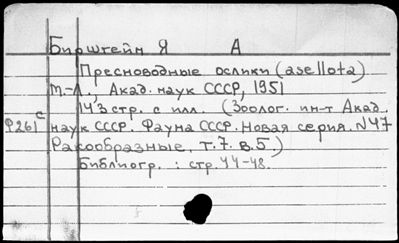 Бирштейн Я А
Пресноводные ослики (asellota)
М.-Л., Акад. наук СССР, 1951
143 стр. с илл. (Зоолог. ин-т Акад.
Р261с наук СССР. Фауна СССР. Новая серия. №47
Ракообразные, т.7. в.5.)
Библиогр. : стр. 44-48.